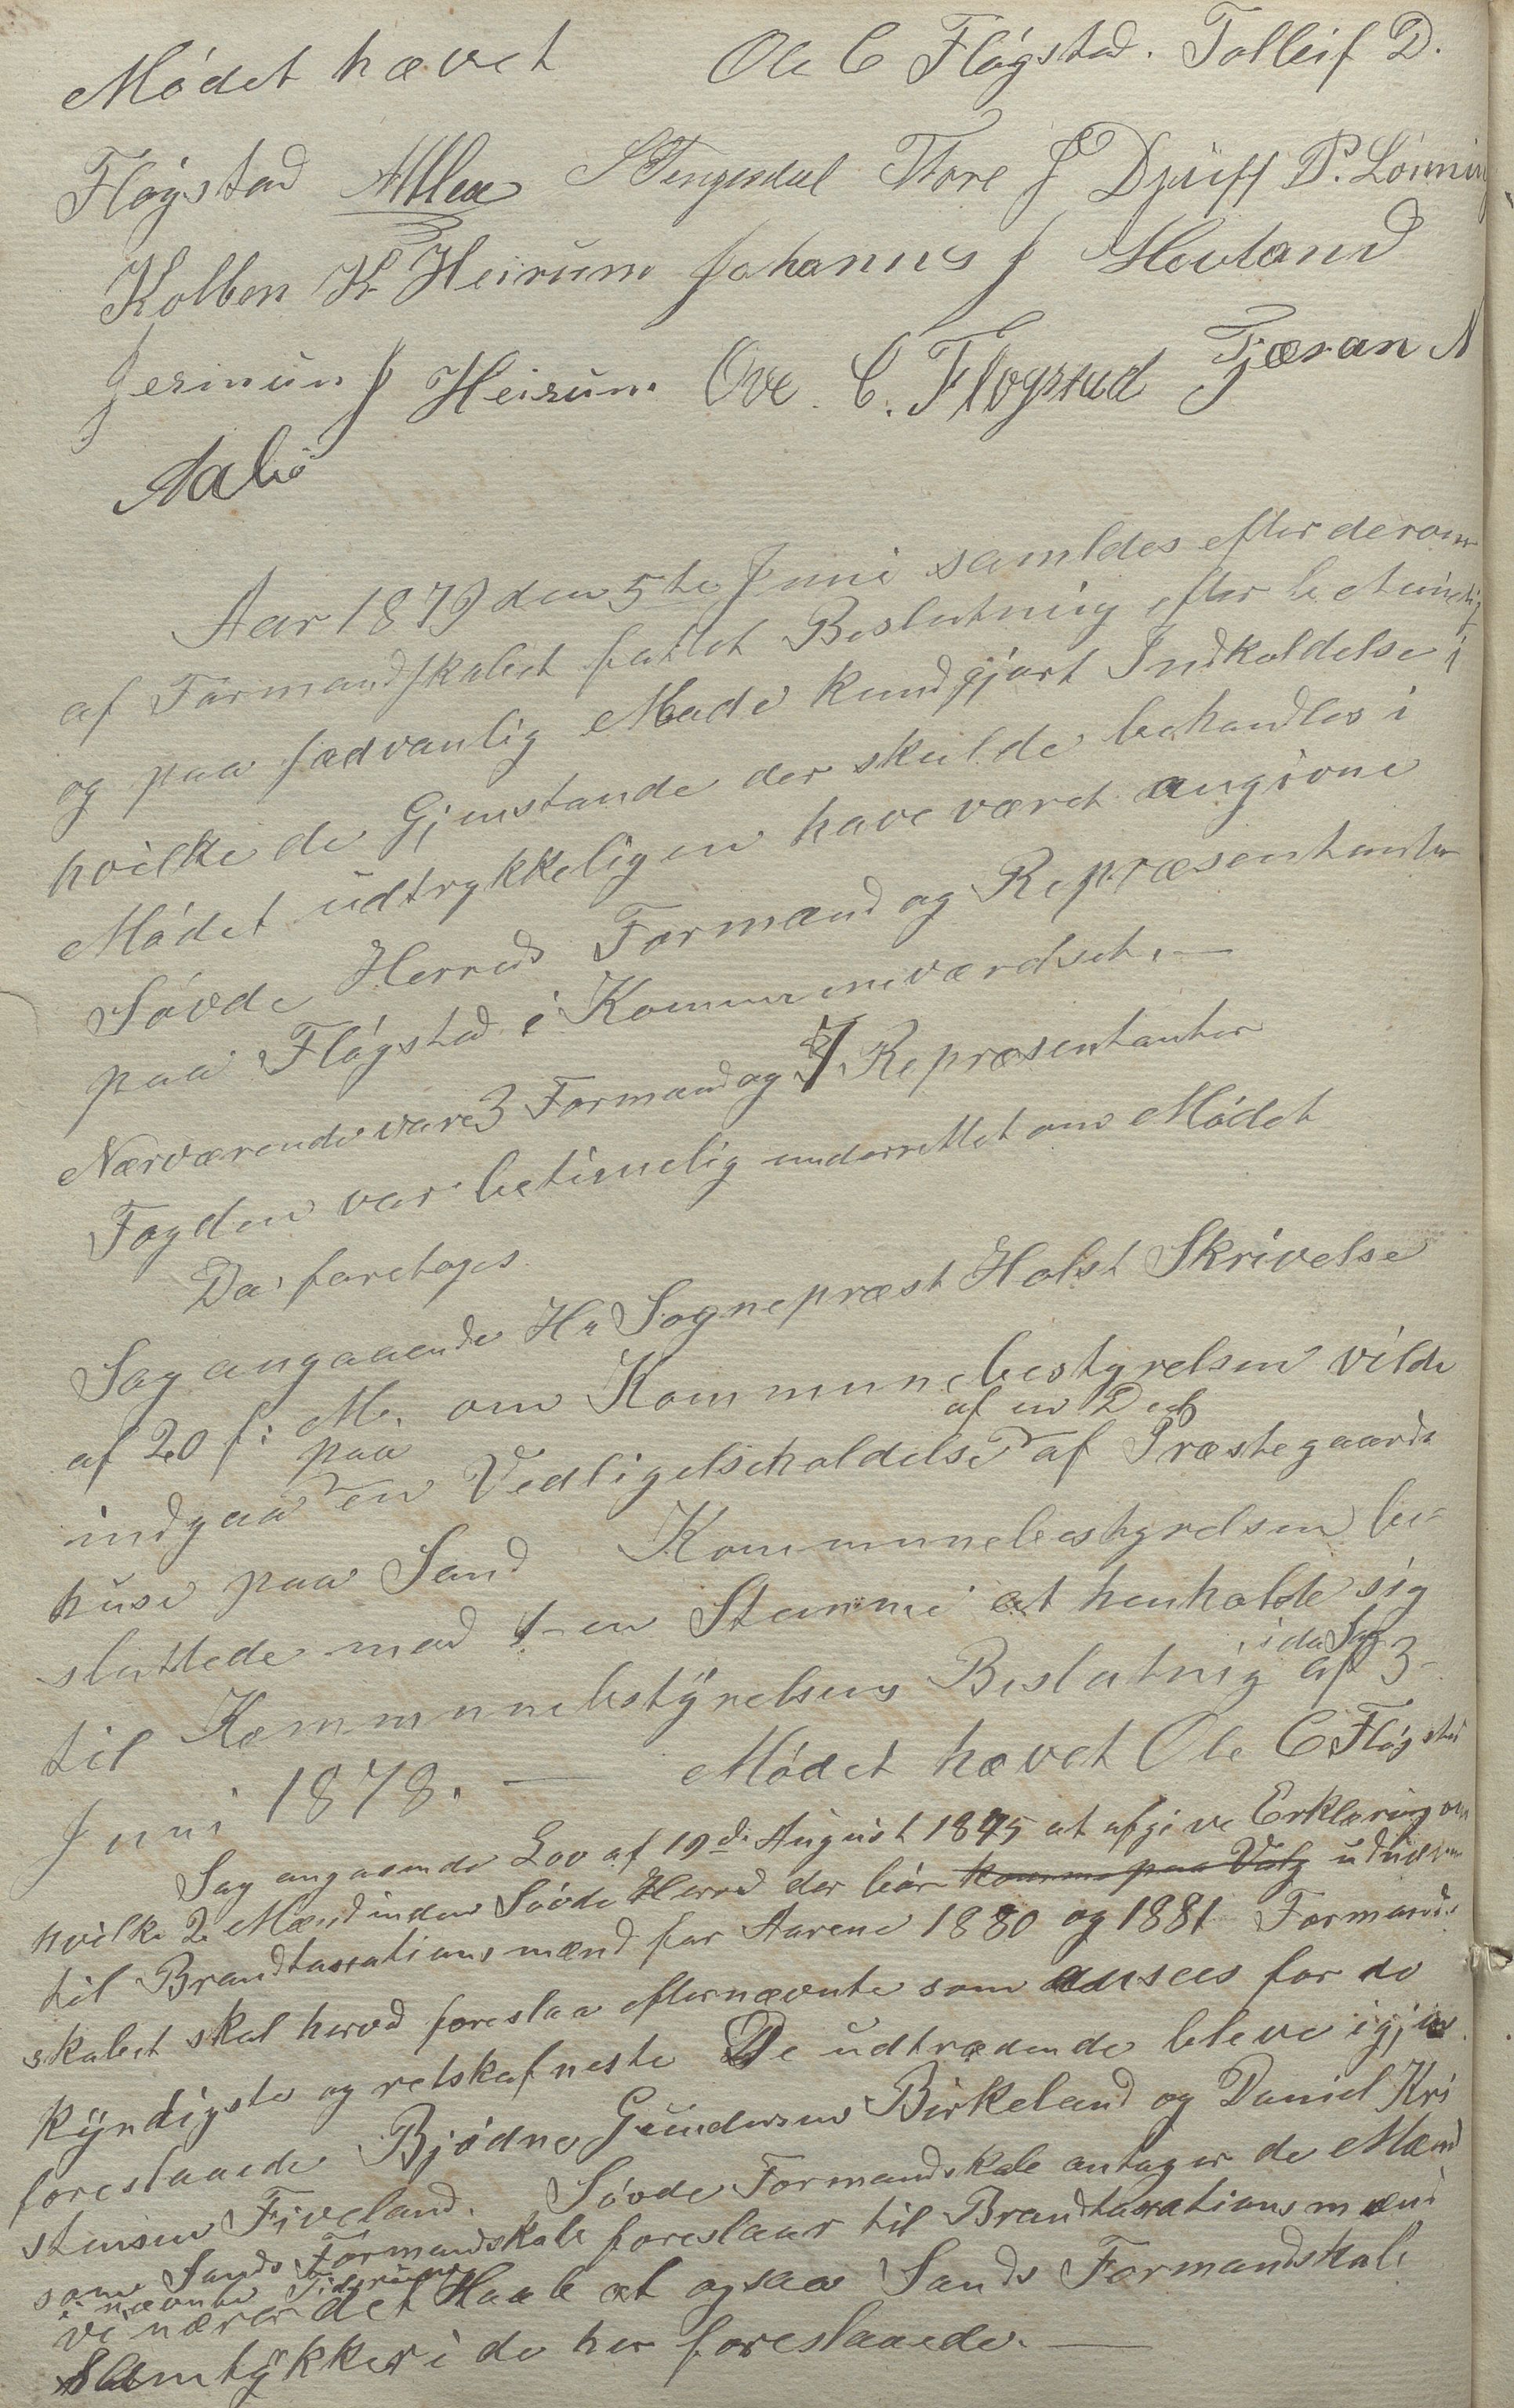 Mødet hævet Ole C Fløgstad. Tolleif D.
Fløgstad S Tengesdal Tore J Djuff P. Løining
Kolben K. Heirum Johannes J Hovland
Jermun J Heirum Ove. C. Fløgstad Tjæran N
Aabø
Aar 1879 den 5te Juni samledes efter derom
af Formandskabet fattet Beslutning efter betimelig
og paa sædvanlig Maade kundgjort Indkaldelse i
hvilke de Gjenstande der skulde behandles i
Mødet udtrykkeligen have været angivne
Søvde Herreds Formænd og Repræsentanter
paa Fløgstad i Kommuneværelset. —
Nærværende vare 3 Formænd og 7 Repræsentanter
Fogden var betimelig underrettet om Mødet
Da foretoges
Sag angaaende Hr Sognepræst Holst Skrivelse
af 20 f: M. om Kommunebestyrelsen vilde
indgaa paa en Vedligeholdelse af en Del af Præstegaards
huse paa Sand Kommunebestyrelsen be-
sluttede mod 1 en Stemme at henholde sig
til Kommunebestyrelsens Beslutnig i de Sag af 3-
Juni 1878. — Mødet hævet Ole C Fløgstad
Sag angaaende Lov af 19de August 1845 at afgive Erklæring om
hvilke 2 Mænd inden Søvde Herred der bør komme paa Valg udnævnes
til Brandtaxationsmænd for Aarene 1880 og 1881 Formands
skabet skal herved foreslaa efternævnte som ansees for de
kyndigste og retskafneste De udtrædende bleve igjen
foreslaaede Bjødne Gundersen Birkeland og Daniel Kri
stensen Fiveland. Søvde Formandskab antager de Mænd
som Sands Formandskab foreslaar til Brandtaxationsmænd
i nævnte Tidsrum
vi nærer det Haab at ogsaa Sands Formandskab
samtykker i de her foreslaaede. —